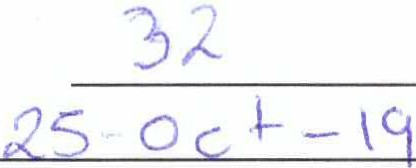 32
25-Oct-19